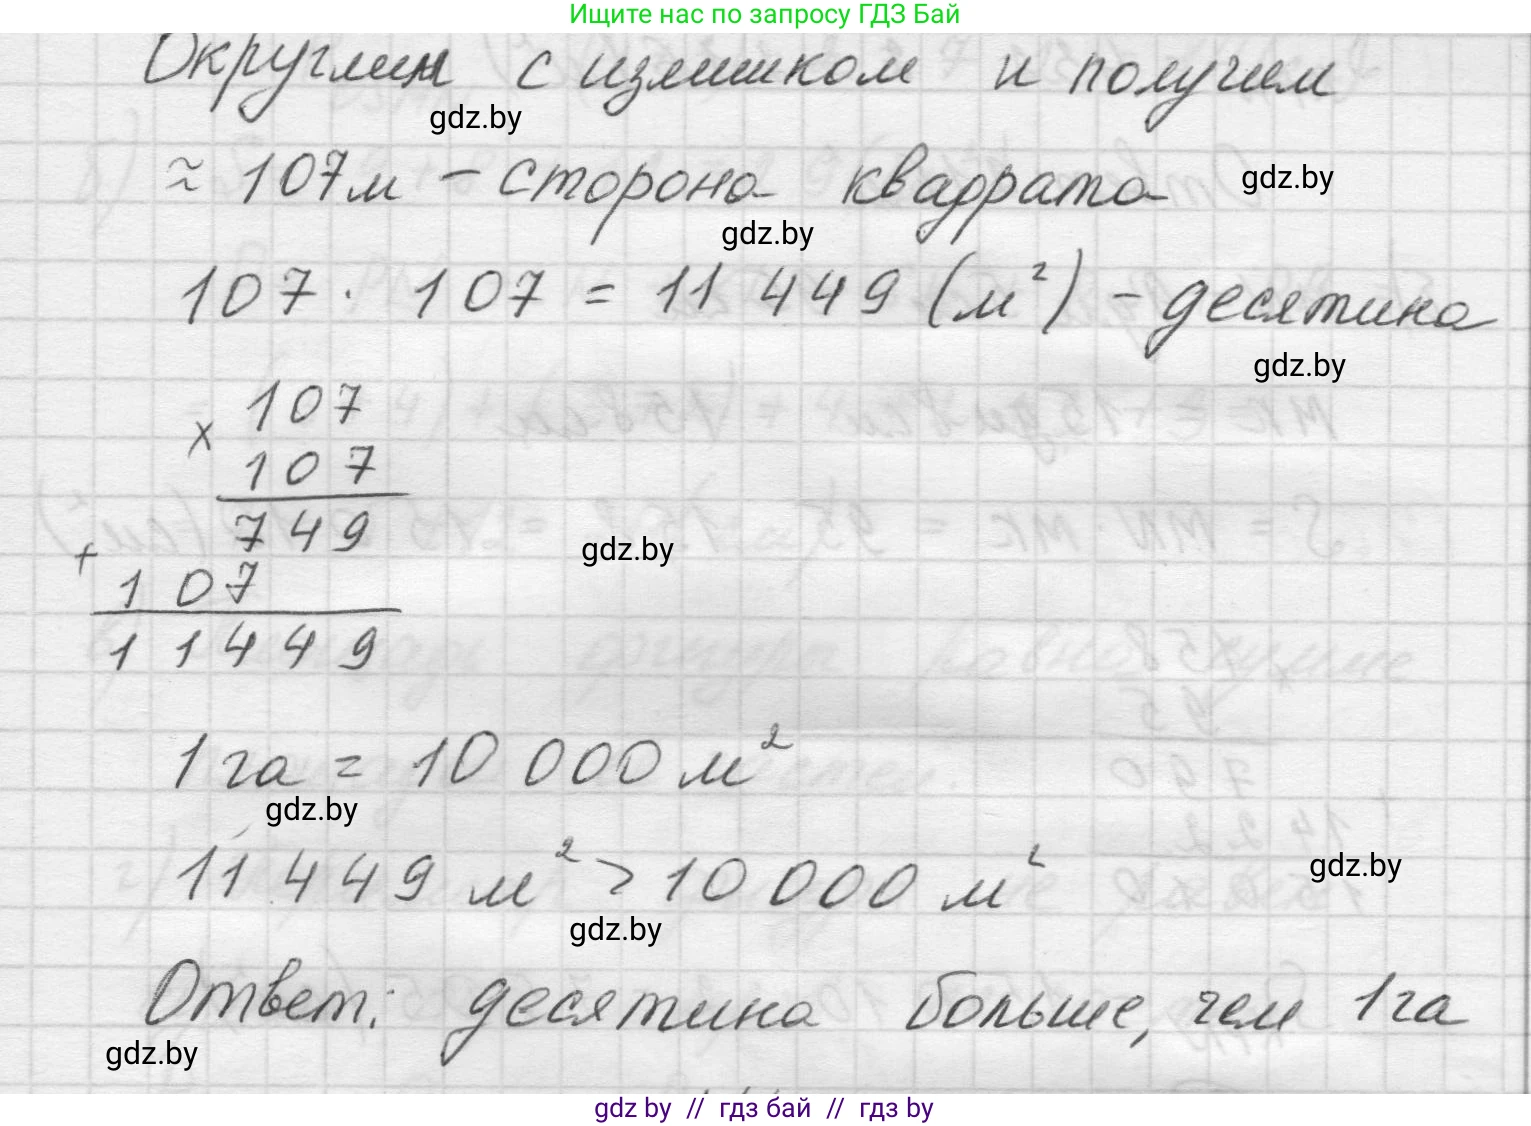 Ищите нас по запросу ГДЗ Бай
Округлим с излишком и получим
gdz.by
≈ 107м - сторона квадрата
gdz.by
gdz.by
107 · 107 = 11 449 (м²) - десятина
gdz.by
107
×
107
749
gdz.by
+
107
11449
1 га = 10 000 м²
gdz.by
11 449 м² > 10 000 м²
gdz.by
gdz.by
Ответ: десятина больше, чем 1 га
gdz.by
gdz by // гдз бай // гдз by